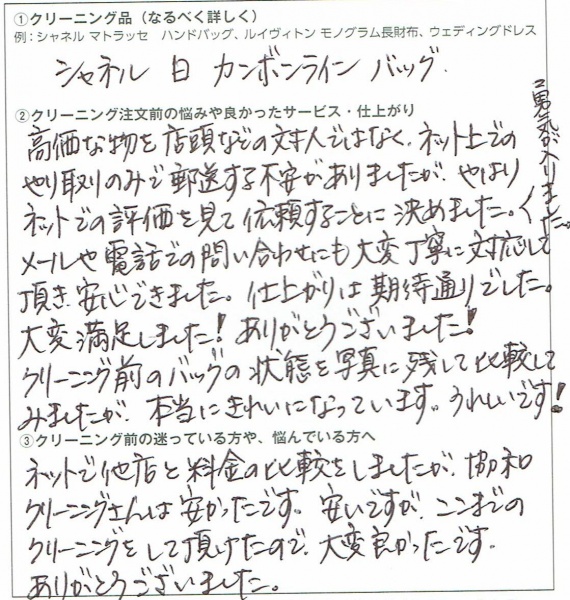 ①クリーニング品（なるべく詳しく）
例：シャネル マトラッセ　ハンドバッグ、ルイヴィトン モノグラム長財布、ウェディングドレス
シャネル 白 カンボンライン バッグ.
②クリーニング注文前の悩みや良かったサービス・仕上がり
高価な物を店頭などの対人ではなく、ネット上での
やり取りのみで郵送する不安がありましたが、やはり
ネットでの評価を見て依頼することに決めました。
勇気が入りました。
メールや電話での問い合わせにも大変丁寧に対応して
頂き、安心できました。仕上がりは期待通りでした。
大変満足しました！ありがとうございました！
クリーニング前のバッグの状態を写真に残して比較して
みましたが、本当にきれいになっています。うれしいです！
③クリーニング前の迷っている方や、悩んでいる方へ
ネットで他店と料金の比較をしましたが、協和
クリーニングさんは安かったです。安いですが、ここまでの
クリーニングをして頂けたので、大変良かったです。
ありがとうございました。